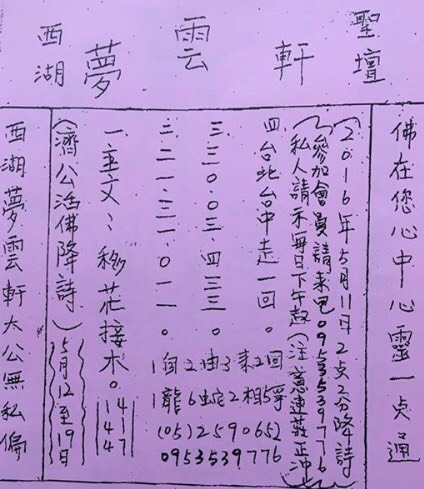 聖壇
西湖夢雲軒
佛在您心中心靈一点通
(2016年5月11日2点2分降詩)
(參加會員請來電0953539776)
(私人請示每日下午起)(注意連莊正沖)
四台北台中走一回。
三.三0.0三.四三三。
三.二一.三一.0一一。
一.主文:移花接木。
(濟公活佛降詩)
5月12至19日
西湖夢雲軒大公無私偏
2由3來2回
1龍6蛇2相5浮
(05)2590652
0953539776
14
14
47